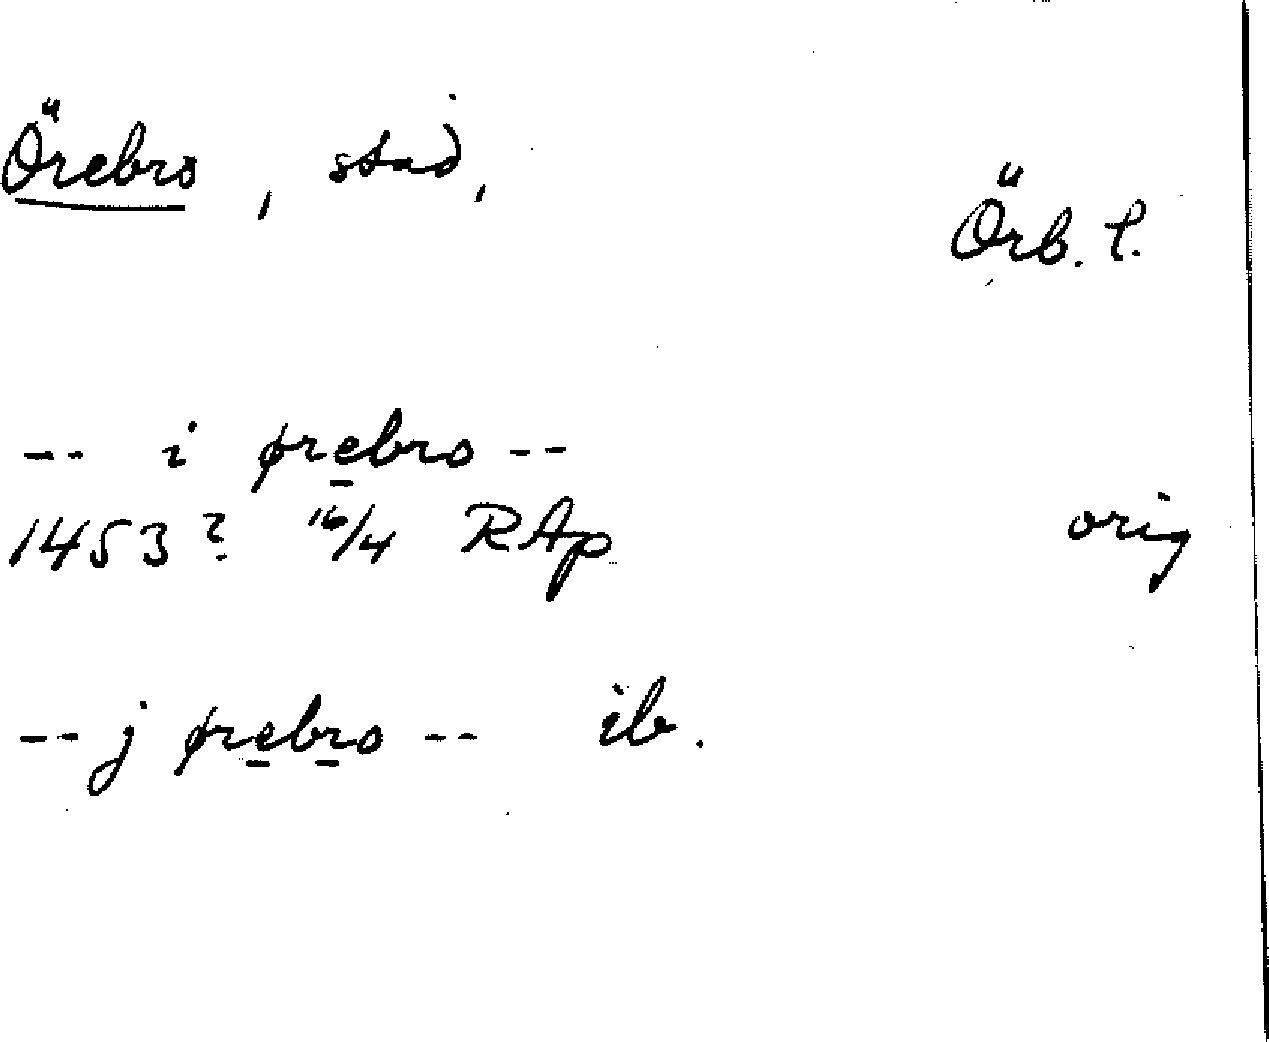 Örebro, stad,
Örb. l.
-- i ørebro --
1453? 16/4 RAp orig
-- j ørebro -- ib.